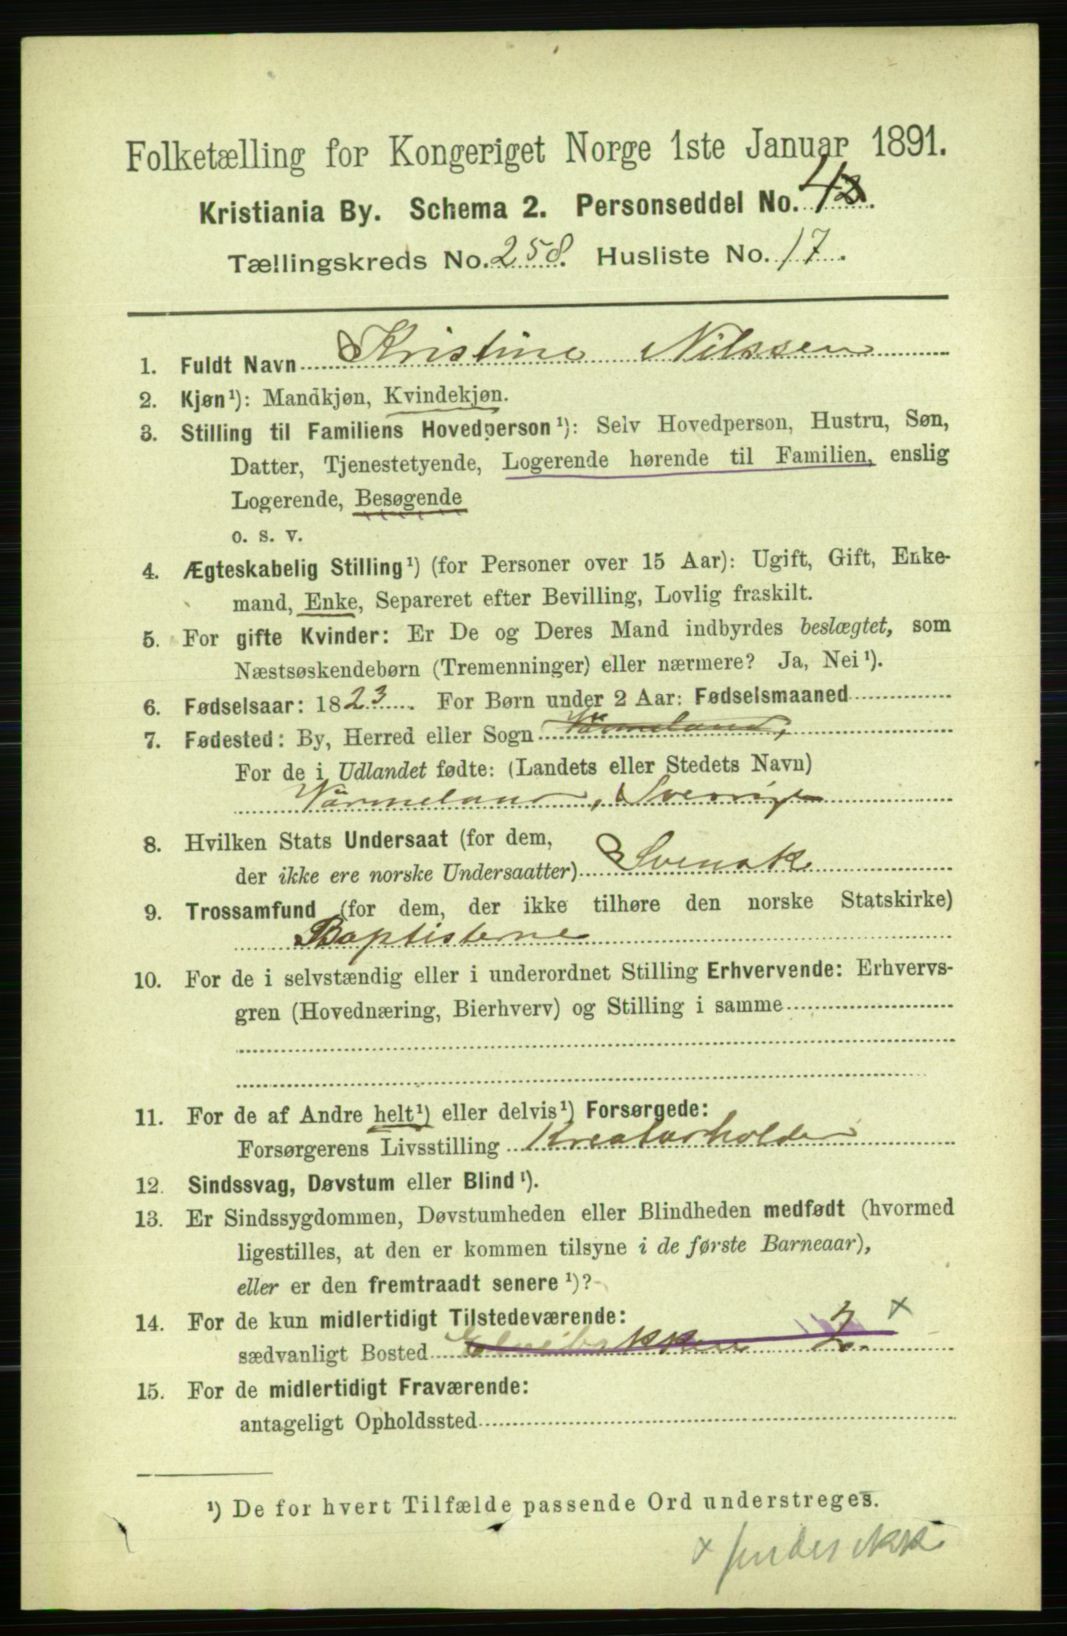 Folketælling for Kongeriget Norge 1ste Januar 1891.
Kristiania By. Schema 2. Personseddel No. 42.
Tællingskreds No. 258. Husliste No. 17.
1. Fuldt Navn Kristine Nilssen
2. Kjøn¹): Mandkjøn, Kvindekjøn.
3. Stilling til Familiens Hovedperson¹): Selv Hovedperson, Hustru, Søn,
Datter, Tjenestetyende, Logerende hørende til Familien, enslig
Logerende, Besøgende
o. s. v.
4. Ægteskabelig Stilling¹) (for Personer over 15 Aar): Ugift, Gift, Enke-
mand, Enke, Separeret efter Bevilling, Lovlig fraskilt.
5. For gifte Kvinder: Er De og Deres Mand indbyrdes beslægtet, som
Næstsøskendebørn (Tremenninger) eller nærmere? Ja, Nei¹).
6. Fødselsaar: 1823. For Børn under 2 Aar: Fødselsmaaned
7. Fødested: By, Herred eller Sogn Värmeland,
For de i Udlandet fødte: (Landets eller Stedets Navn)
Värmeland, Sverrige
8. Hvilken Stats Undersaat (for dem,
der ikke ere norske Undersaatter) Svensk
9. Trossamfund (for dem, der ikke tilhøre den norske Statskirke)
Baptisterne
10. For de i selvstændig eller i underordnet Stilling Erhvervende: Erhvervs-
gren (Hovednæring, Bierhverv) og Stilling i samme
11. For de af Andre helt¹) eller delvis¹) Forsørgede:
Forsørgerens Livsstilling Kreaturholder
12. Sindssvag, Døvstum eller Blind¹).
13. Er Sindssygdommen, Døvstumheden eller Blindheden medfødt (hvormed
ligestilles, at den er kommen tilsyne i de første Barneaar),
eller er den fremtraadt senere¹)?
14. For de kun midlertidigt Tilstedeværende: x
sædvanligt Bosted 2.
15. For de midlertidigt Fraværende:
antageligt Opholdssted
¹) De for hvert Tilfælde passende Ord understreges.
x findes ikke